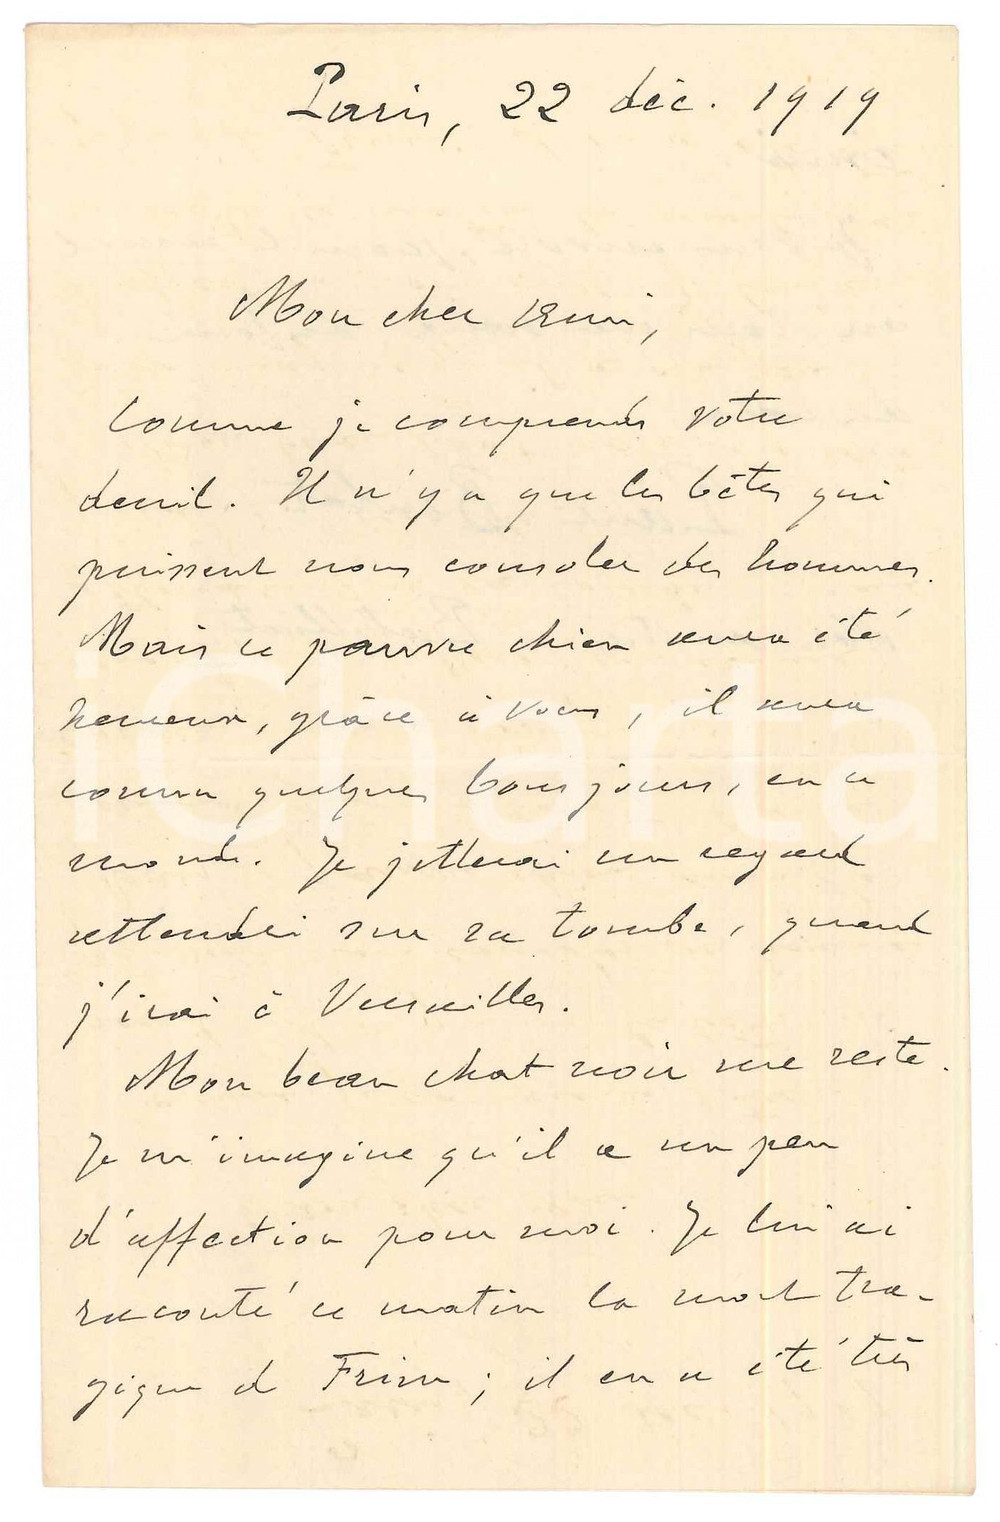 Paris, 22 déc. 1919
Mon cher
Comme je comprends votre
deuil. Il n'y a que les bêtes qui
puissent nous consoler des hommes.
Mais ce pauvre chien aura été
heureux, grâce à vous, il aura
connu quelques bons jours, en ce
monde. Je jetterai un regard
attendri sur sa tombe, quand
j'irai à Versailles.
Mon beau chat noir me reste.
Je m'imagine qu'il a un peu
d'affection pour moi. Je lui ai
raconté ce matin la mort tra-
gique de ; il en a été très
iCharta